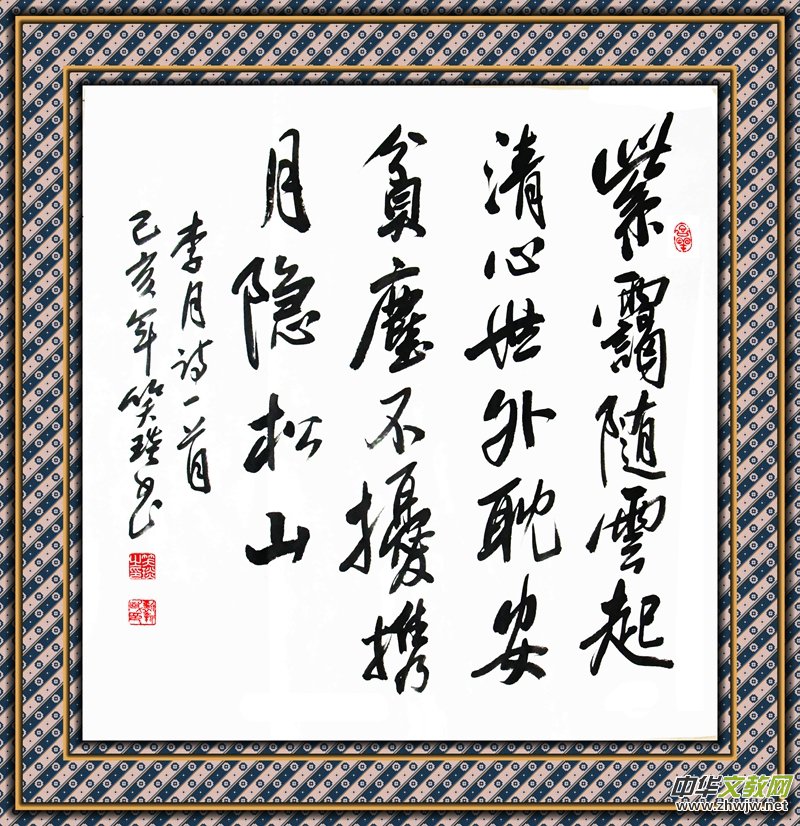 紫靄隨雲起
清心世外耽安
貧塵不擾携
月隐松山
李月诗一首
己亥年笑琰书
中华文教网
www.zhwjw.net